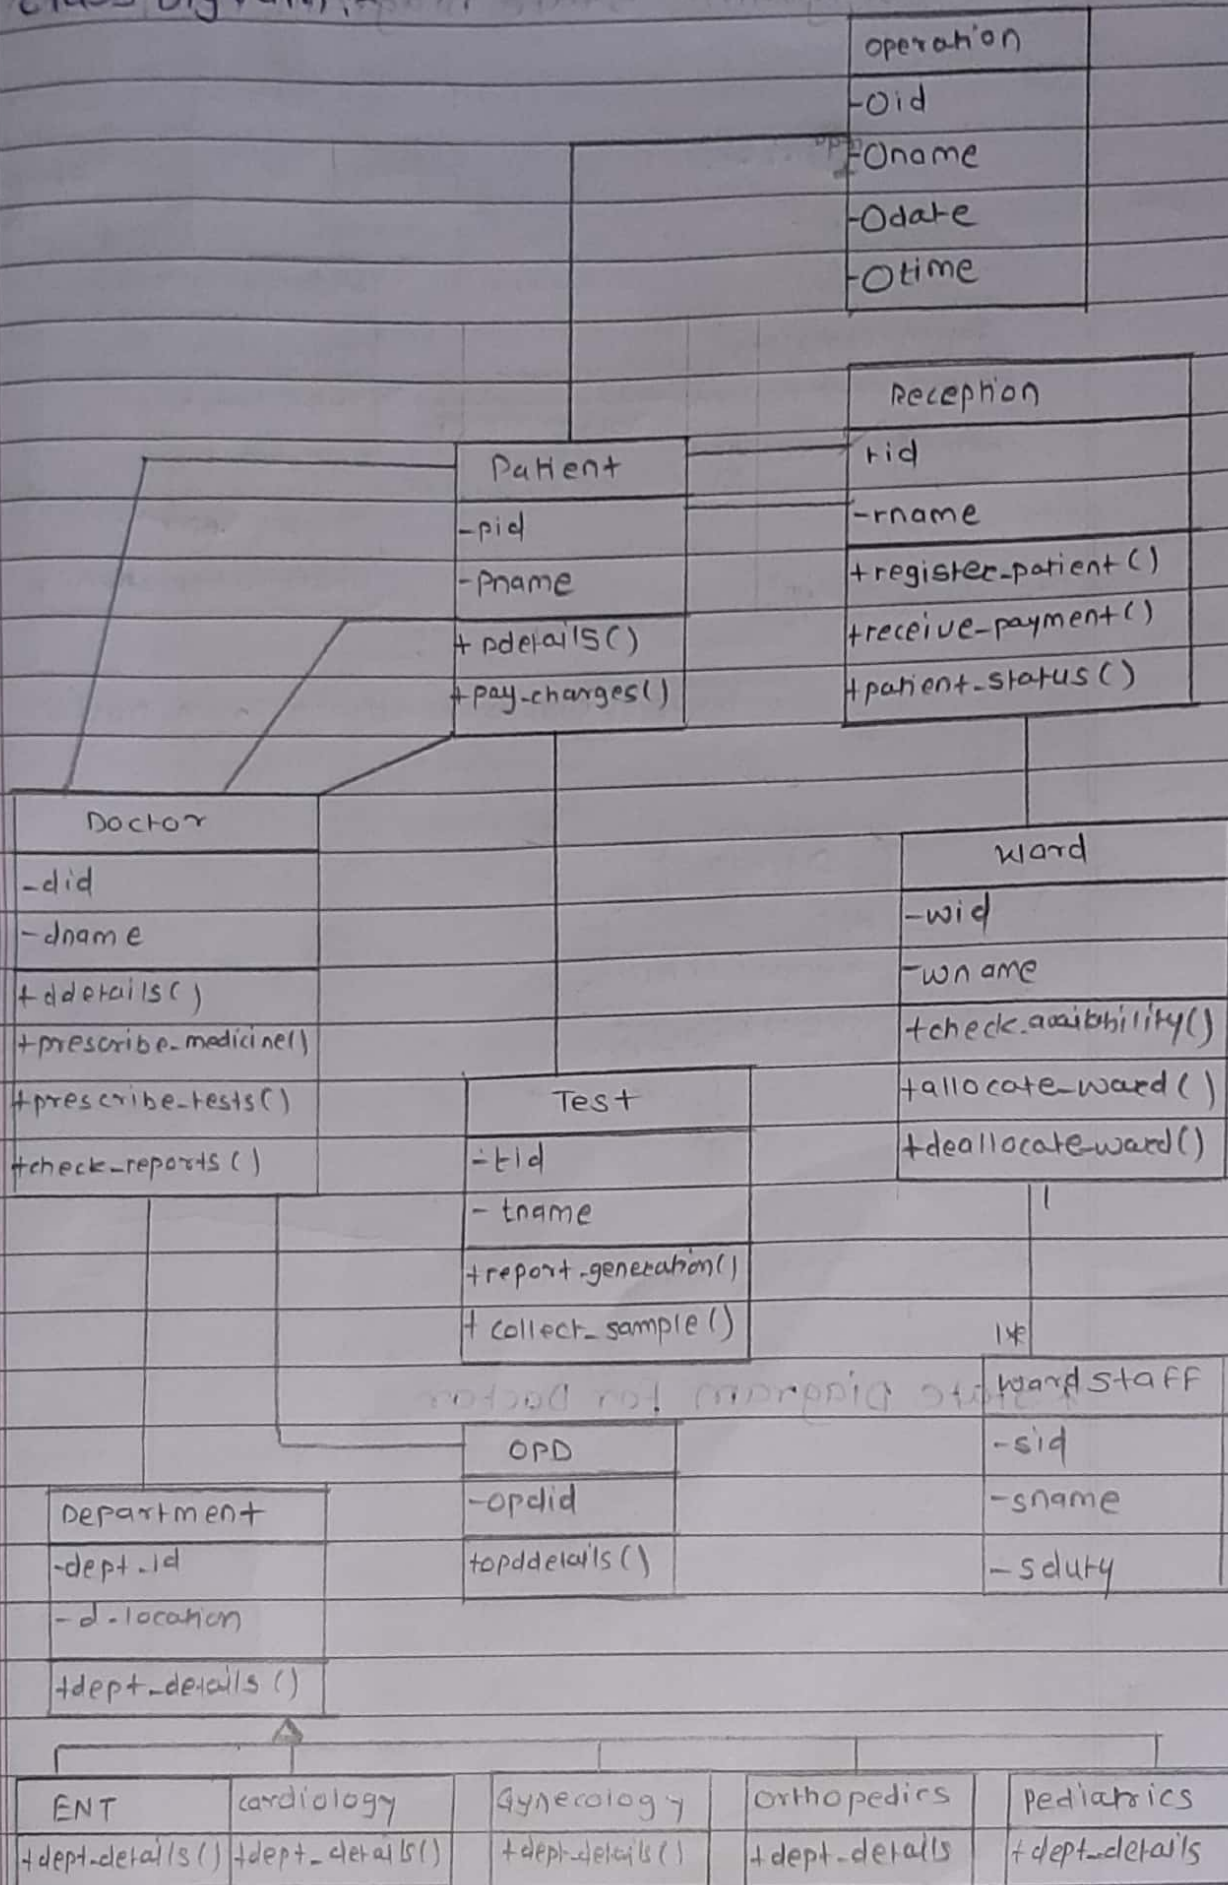 class Diagram:
operation
-Oid
-Oname
-Odate
-Otime
Reception
rid
-rname
+register_patient()
+receive_payment()
+patient_status()
Patient
-pid
-Pname
+ pdetails()
+pay_charges()
Doctor
-did
-dname
+ddetails()
+prescribe_medicine()
+prescribe_tests()
+check_reports()
Ward
-wid
-wname
+check_avaibility()
+allocate_ward()
+deallocate_ward()
1
Test
-tid
- tname
+report_generation()
+ collect_sample()
ward staff
-sid
-sname
-sduty
OPD
-opdid
+opddetails()
Department
-dept_id
-d-location
+dept_details()
ENT
+dept_details()
cardiology
+dept_details()
Gynecology
+dept_details()
Orthopedics
+dept_details
pediatrics
+dept_details